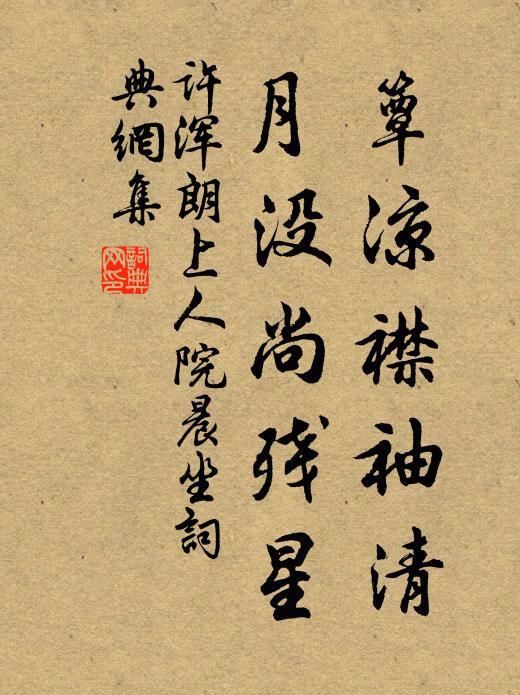 簟凉襟袖清
月没尚残星
许浑朗上人院晨坐詞
典網集
詞典网印